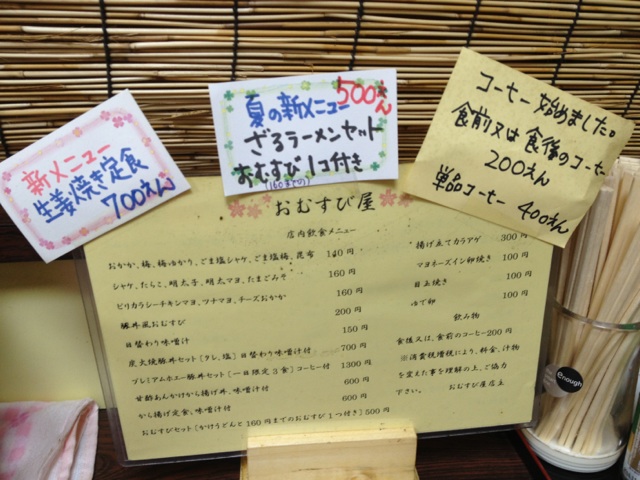 新メニュー
生姜焼き定食
700えん
夏の新メニュー 500えん
ざるラーメンセット
おむすび1コ付き
(160までの)
コーヒー始めました。
食前又は食後のコーヒー
200えん
単品コーヒー 400えん
おむすび屋
店内飲食メニュー
おかか、梅、梅ゆかり、ごま塩シャケ、ごま塩梅、昆布 140円
シャケ、たらこ、明太子、明太マヨ、たまごみそ 160円
ピリカラシーチキンマヨ、ツナマヨ、チーズおかか 160円
豚丼風おむすび 200円
日替わり味噌汁 150円
炭火焼豚丼セット[タレ、塩]日替わり味噌汁付 700円
プレミアムホエー豚丼セット[一日限定3食]コーヒー付 1300円
甘酢あんかけから揚げ丼、味噌汁付 600円
から揚げ定食、味噌汁付 600円
おむすびセット(かけうどんと160円までのおむすび1つ付き)500円
揚げ立てカラアゲ 300円
マヨネーズイン卵焼き 100円
目玉焼き
ゆで卵
飲み物
食後又は、食前のコーヒー200円
※消費税増税により、料金、汁物
を変えた事を理解の上、ご協力
下さい。 おむすび屋店主
enough